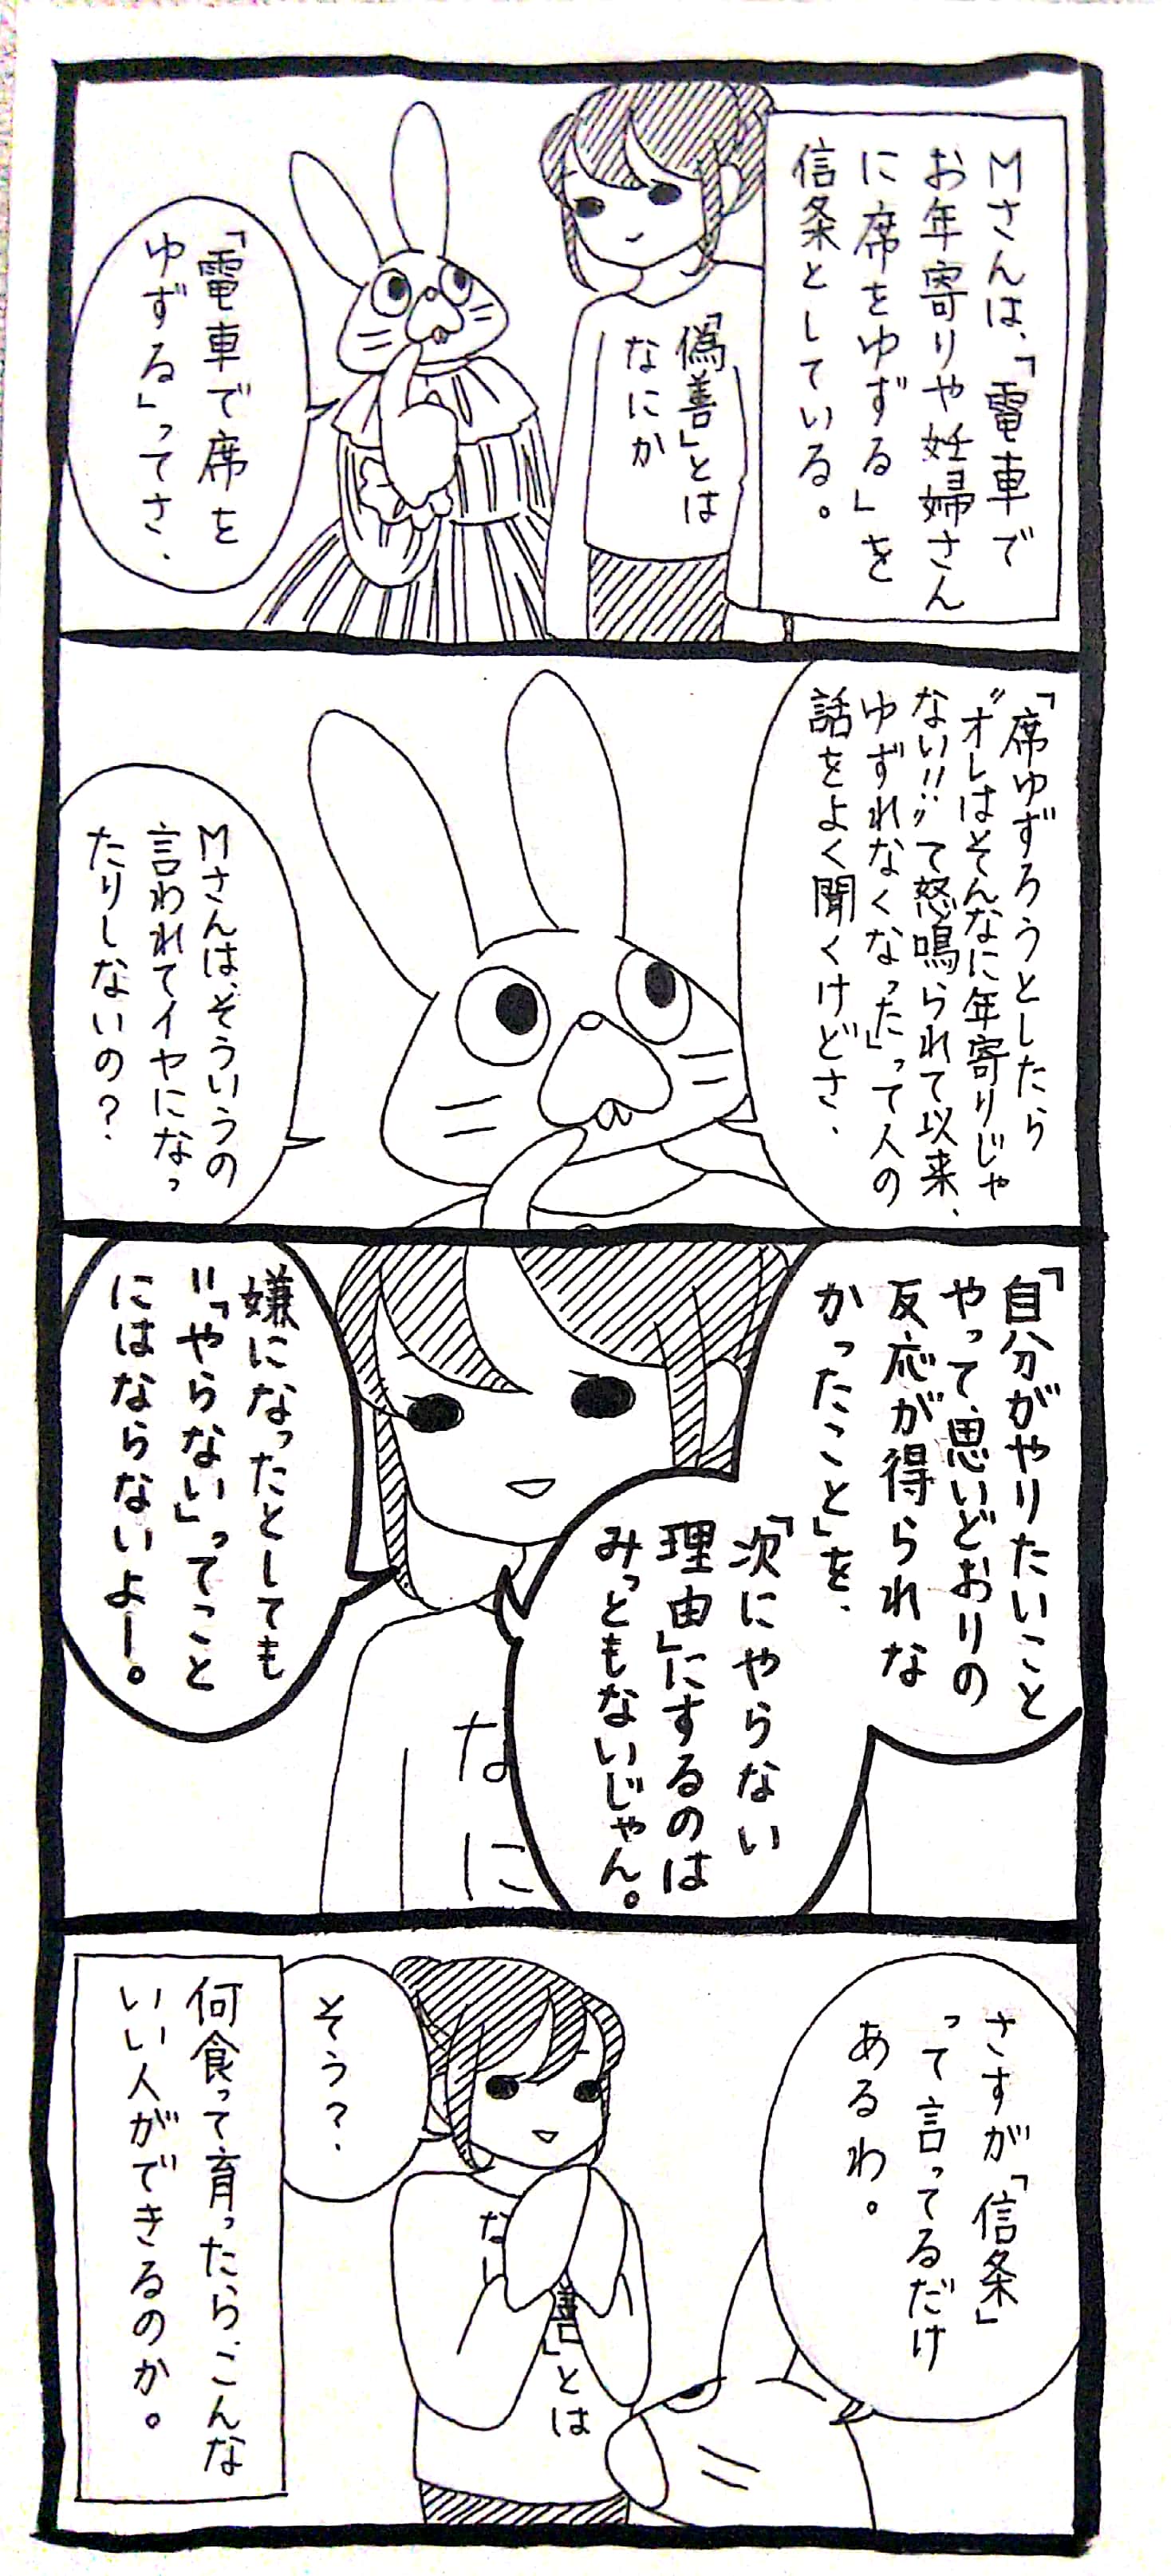 Mさんは、「電車で
お年寄りや妊婦さん
に席をゆずる」を
信条としている。
「偽善」とは
なにか
「電車で席を
ゆずる」ってさ、
「席ゆずろうとしたら
〝オレはそんなに年寄りじゃ
ない!!〟て怒鳴られて以来、
ゆずれなくなった」って人の
話をよく聞くけどさ、
Mさんは、そういうの
言われてイヤになっ
たりしないの?
「自分がやりたいこと
やって、思いどおりの
反応が得られな
かったこと」を、
「次にやらない
理由」にするのは
みっともないじゃん。
なに
嫌になったとしても
=「やらない」ってこと
にはならないよー。
さすが「信条」
って言ってるだけ
あるわ。
善」とは
な
そう?
何食って育ったら、こんな
いい人ができるのか。